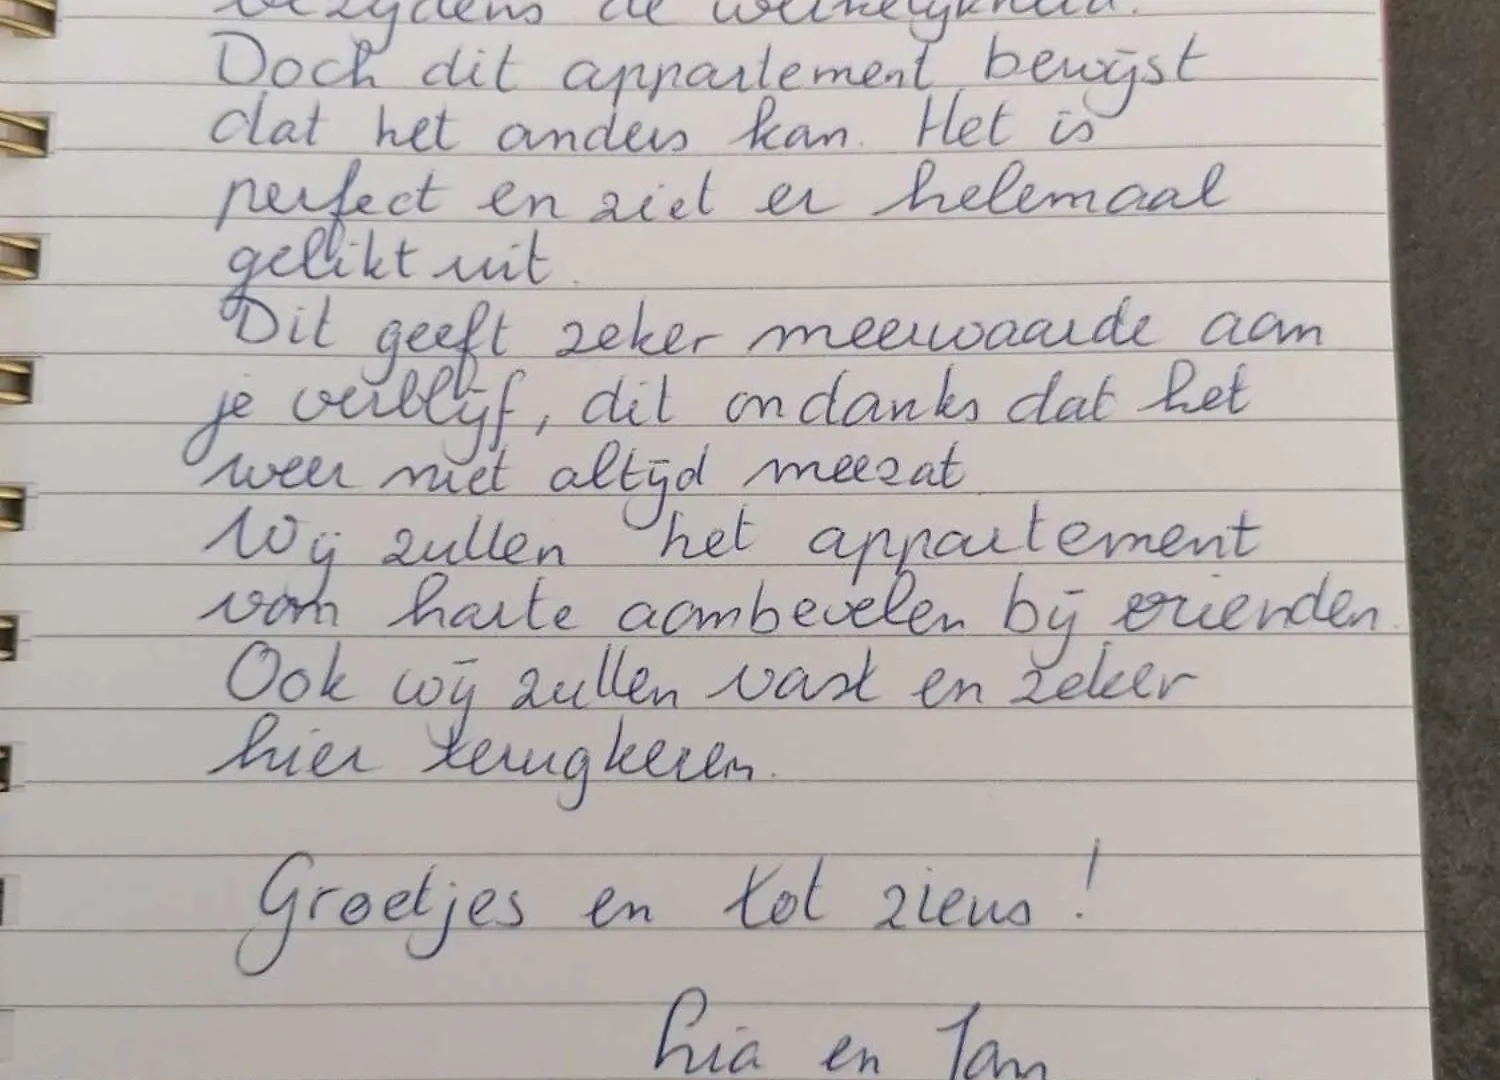 bezijdens de werkelijkheid.
Doch dit appartement bewijst
dat het anders kan. Het is
perfect en ziet er helemaal
gelikt uit.
Dit geeft zeker meerwaarde aan
je verblijf, dit ondanks dat het
weer niet altijd meezat
Wij zullen het appartement
van harte aanbevelen bij vrienden.
Ook wij zullen vast en zeker
hier terugkeren.
Groetjes en tot ziens!
en Jan